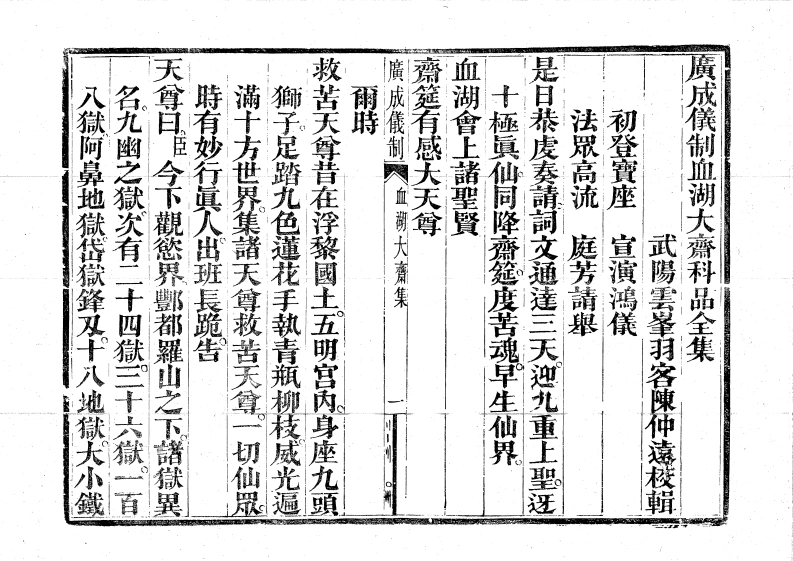 廣成儀制血湖大齋科品全集
武陽雲峯羽客陳仲遠校輯
初登寶座　宣演鴻儀
法眾高流　庭芳請舉
是日恭虔奏請詞文通達三天迎九重上聖迓
十極眞仙同降齋筵度苦魂早生仙界
血湖會上諸聖賢
齋筵有感大天尊
廣成儀制　血湖大齋集　一
爾時
救苦天尊昔在浮黎國土五明宫內身座九頭
獅子足踏九色蓮花手執青瓶柳枝威光遍
滿十方世界集諸天尊救苦天尊一切仙眾
時有妙行眞人出班長跪告
天尊曰臣今下觀慾界酆都羅山之下諸獄異
名九幽之獄次有二十四獄三十六獄一百
八獄阿鼻地獄岱獄鋒刄十八地獄大小鐵